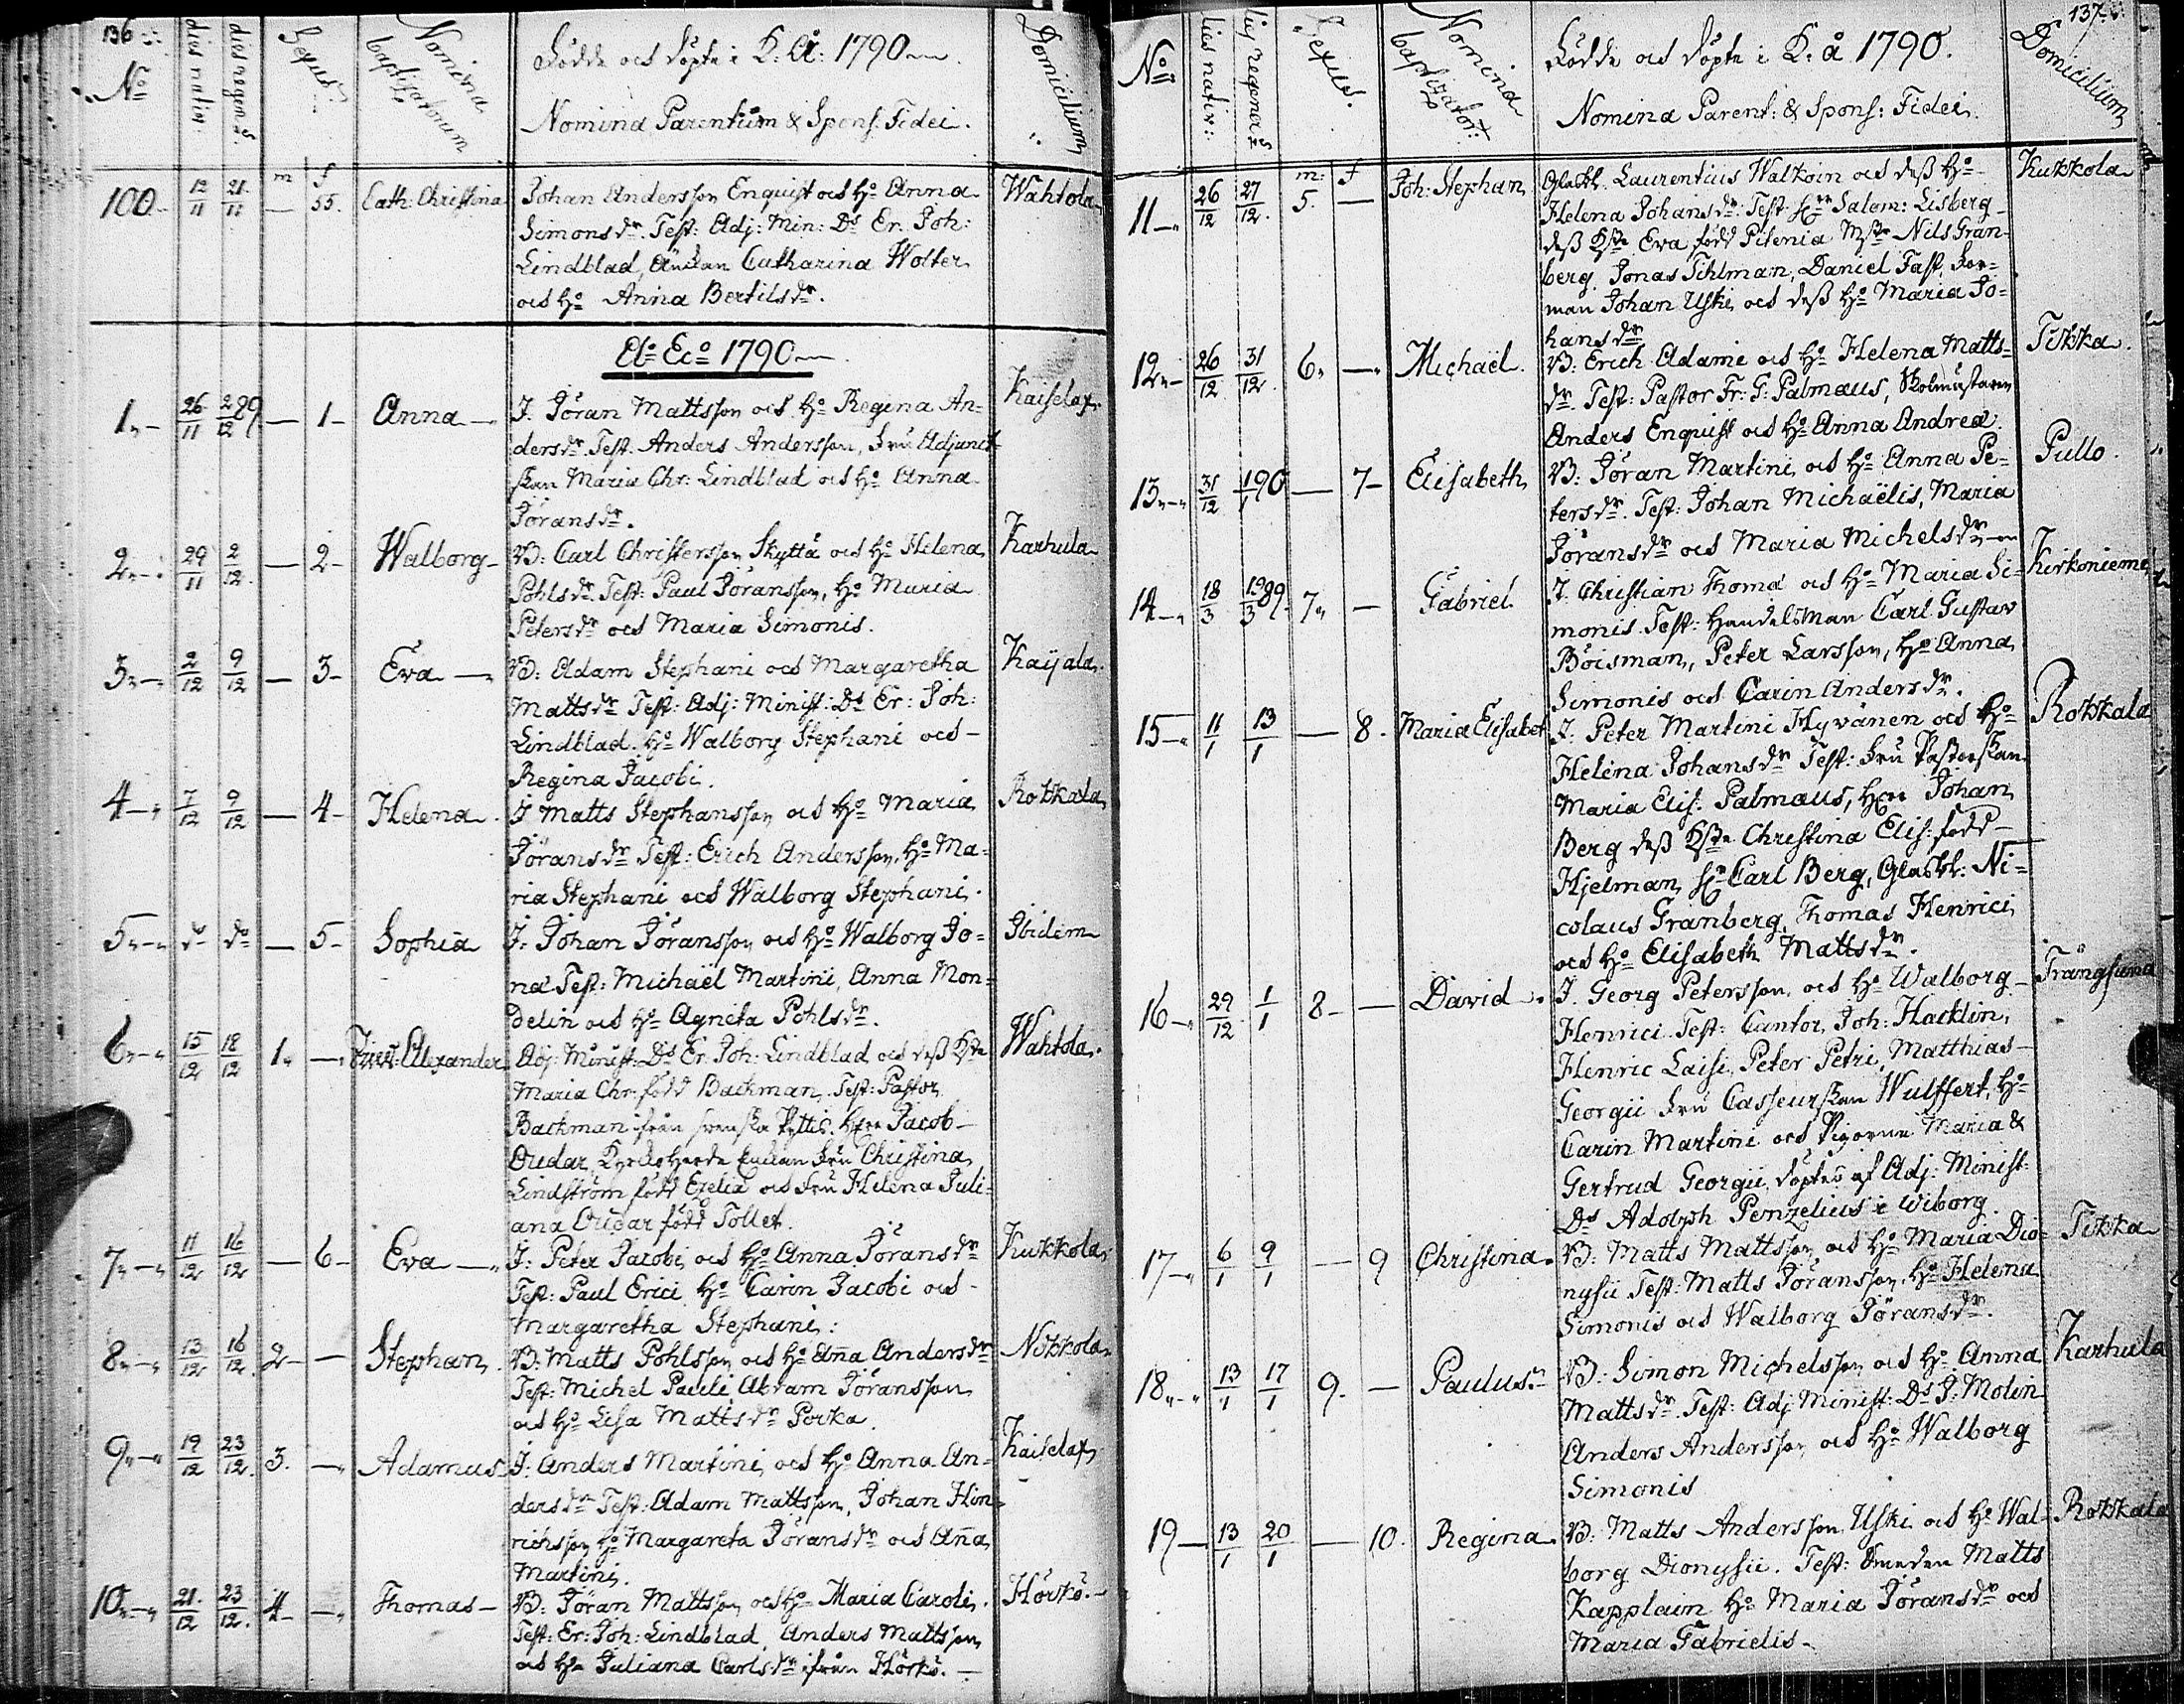 136
No dies nativ: dies regen: Sexus: Nomina baptizatorum Födde och döpte i K: Å: 1790 Domicilium
Nomina Parentum & Spons: Fidei.
m f
100 12/11 21/11 — 55. Cath: Christina Johan Andersson Enquist och Ho Anna Wahtola
Simonsdr. Test: Adj: Min: Ds Er. Joh:
Lindblad, Änkan Catharina Wolter
och Ho Anna Bertilsdr.
Ao Eco 1790
1 26/11 2/12 89 — 1 Anna J. Jöran Mattsson och Ho Regina An= Kaiselax
dersdr. Test: Anders Andersson, Fru Adjunct
skan Maria Chr: Lindblad och Ho Anna
Jöransdr.
2 29/11 2/12 — 2 Walborg B: Carl Christersson Skyttä och Ho Helena Karhula
Pohlsdr. Test: Paul Jöransson, Ho Maria
Petersdr och Maria Simonis.
3 2/12 9/12 — 3 Eva B: Adam Stephani och Margaretha Kaijala
Mattsdr Test: Adj: Minist: Ds Er: Joh:
Lindblad. Ho Walborg Stephani och
Regina Jacobi.
4 7/12 9/12 — 4 Helena J Matts Stephansson och Ho Maria Rokkala
Jöransdr Test: Erich Andersson, Ho Ma=
ria Stephani och Walborg Stephani.
5 do do — 5 Sophia J: Johan Jöransson och Ho Walborg Jo= Ibidem
nä Test: Michaël Martini, Anna Mon=
delin och Ho Agneta Pohlsdr.
6 15/12 18/12 1 — Alexander Adj: Minist: Ds Er. Joh: Lindblad och dess Wahtola
Maria Chr: född Backman. Test: Pastor
Backman ifrån svenska Pyttis. Herr Jacob
Oudar, Kyrkoherde Enkan Fru Christina
Lindström född Exelia och Fru Helena Juli=
ana Oudar född Tollet.
7 11/12 16/12 — 6 Eva J: Peter Jacobi och Ho Anna Jöransdr Kukkola
Test: Paul Erici Ho Carin Jacobi och
Margaretha Stephani:
8 13/12 16/12 2 — Stephan B: Matts Pohlsson och Ho Aña Andersdr Nokkola
Test: Michel Pauli Abram Jöransson
och Ho Lisa Mattsdr Porka.
9 19/12 23/12 3. — Adamus J: Anders Martini och Ho Anna An= Kaiselax
dersdr Test: Adam Mattsson, Johan Hin=
richsson Ho Margareta Jöransdr och Aña
Martini.
10 21/12 23/12 4 — Thomas B: Jöran Mattsson och Ho Maria Caroli. Hörkö.
Test: Er: Joh: Lindblad, Anders Mattsson
och Ho Juliana Carlsdr ifrån Hörkö.
137
No dies nativ: dies regener: Sexus. Nomina baptizator: Födde och döpte i K: å 1790. Domicilium
Nomina Parent: & Spons: Fidei.
m: f
11 26/12 27/12 5. — Joh: Stephan Laurentius Walkoin och dess Ho Kukkola
Helena Johansdr. Test: Salom: Lisberg
dess Eva född Pitenia Nils Gran=
berg. Jonas Tihlman, Daniel Fast, For=
man Johan Uski och dess Ho Maria Jo=
hansdr
12 26/12 31/12 6 — Michaël. B: Erich Adami och Ho Helena Matts= Tikka.
dr. Test: Pastor Fr: G: Palmæus, Skolmästaren
Anders Enquist och Ho Anna Andreæ.
13 31/12 1/1 90 — 7 Elisabeth B: Jöran Martini och Ho Anna Pe= Pullo.
tersdr. Test: Johan Michaëlis, Maria
Jöransdr och Maria Michelsdr
14 18/3 19/3 89. 7 — Gabriel J. Christian Thomæ och Ho Maria Si= Kirkoniemi
monis. Test: Handelsman Carl Gustav
Böisman, Peter Larsson, Ho Anna
Simonis och Carin Andersdr.
15 11/1 13/1 — 8. Maria Elisabet J. Peter Martini Hyvänen och Ho Rokkala
Helena Johansdr Test: Fru Pastorskan
Maria Elis: Palmæus, Herr Johan
Berg dess Christina Elis: född
Hjelman, Carl Berg, Ni=
colaus Granberg, Thomas Henrici
och Ho Elisabeth Mattsdr.
16 29/12 1/1 8 — David J. Georg Petersson och Ho Walborg Trångsund
Henrici Test: Cantor Joh: Hacklin,
Henric Laisi, Peter Petri, Matthias
Georgii Fru Casseurskan Wulffert, Ho
Carin Martini och Pigorne Maria &
Gertrud Georgii, döptes af Adj: Minist:
Ds Adolph Penzelius i Wiborg.
17 6/1 9/1 — 9 Christina B: Matts Mattsson och Ho Maria Dio= Tikka
nysii Test: Matts Jöransson, Ho Helena
Simonis och Walborg Jöransdr.
18 13/1 17/1 9. — Paulus B: Simon Michelsson och Ho Anna Karhula
Mattsdr. Test: Adj: Minist: Ds J: Molin
Anders Andersson och Ho Walborg
Simonis
19 13/1 20/1 — 10. Regina B: Matts Andersson Uski och Ho Wal= Rokkala
borg Dionysii. Test: Smeden Matts
Kapplain Ho Maria Jöransdr och
Maria Gabrielis